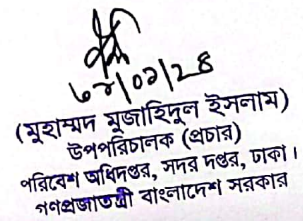 ৩১/০১/২৪
(মুহাম্মদ মুজাহিদুল ইসলাম)
উপপরিচালক (প্রচার)
পরিবেশ অধিদপ্তর, সদর দপ্তর, ঢাকা।
গণপ্রজাতন্ত্রী বাংলাদেশ সরকার